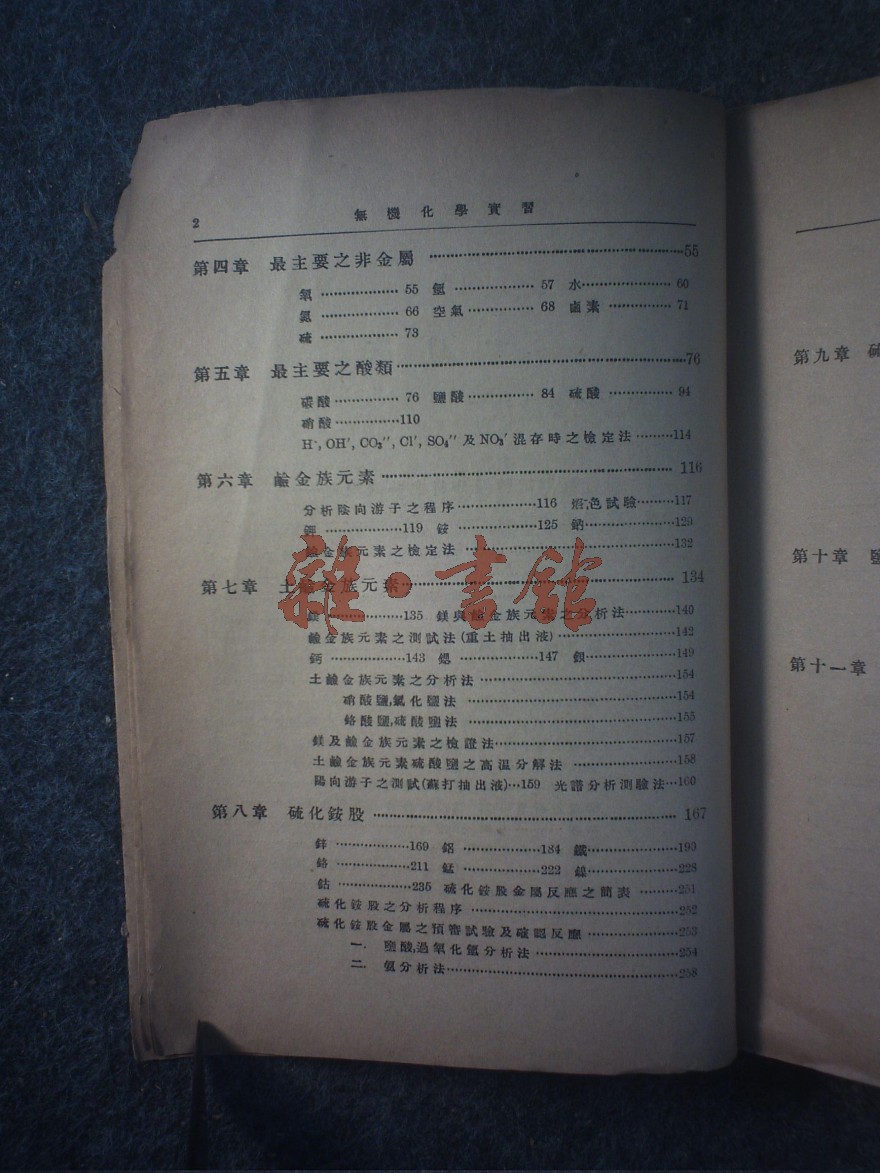 2 無機化學實習
第四章 最主要之非金屬 ……55
氧 …… 55 氫 …… 57 水…… 60
氮 …… 66 空氣…… 68 鹵素 …… 71
硫 …… 73
第五章 最主要之酸類……76
碳酸…… 76 鹽酸…… 84 硫酸 …… 94
硝酸……110
H·, OH′, CO₃″, Cl′, SO₄″ 及 NO₃′ 混存時之檢定法……114
第六章 鹼金族元素……116
分析陰向游子之程序……116 焰色試驗……117
鉀 ……119 銨 ……125 鈉……129
鹼金族元素之檢定法 ……132
第七章 土鹼金族元素……134
鎂 ……135 鎂與鹼金族元素之分析法……140
鹼金族元素之測試法(重土抽出液)……142
鈣 ……143 鍶 ……147 鋇……149
土鹼金族元素之分析法 ……154
硝酸鹽,氯化鹽法 ……154
鉻酸鹽,硫酸鹽法 ……155
鎂及鹼金族元素之檢證法……157
土鹼金族元素硫酸鹽之高溫分解法 ……158
陽向游子之測試(蘇打抽出液)…159 光譜分析測驗法…160
第八章 硫化銨股 ……167
鋅 ……169 鋁 ……184 鐵……193
鉻 ……211 錳 ……222 鎳……228
鈷 ……235 硫化銨股金屬反應之簡表 ……251
硫化銨股之分析程序 ……252
硫化銨股金屬之預審試驗及確認反應 ……253
一. 鹽酸,過氧化氫分析法 ……254
二. 氨分析法……258
第九章 硫
第十章 鹽
第十一章
雜·書館